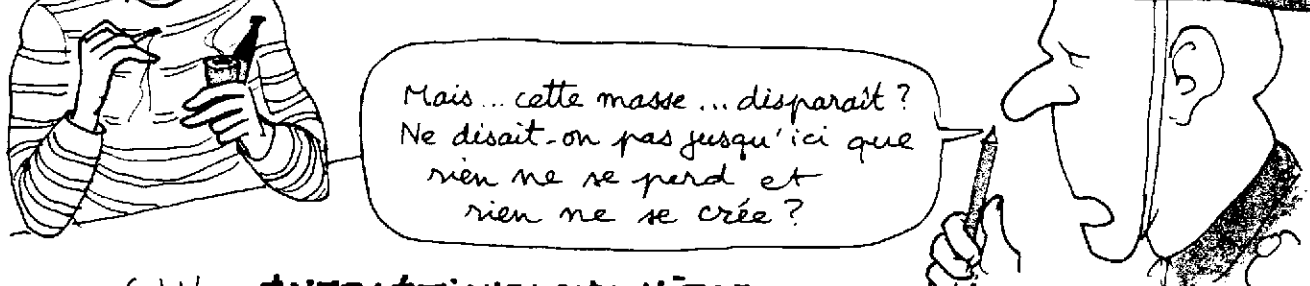 Mais... cette masse... disparaît ?
Ne disait-on pas jusqu'ici que
rien ne se perd et
rien ne se crée ?